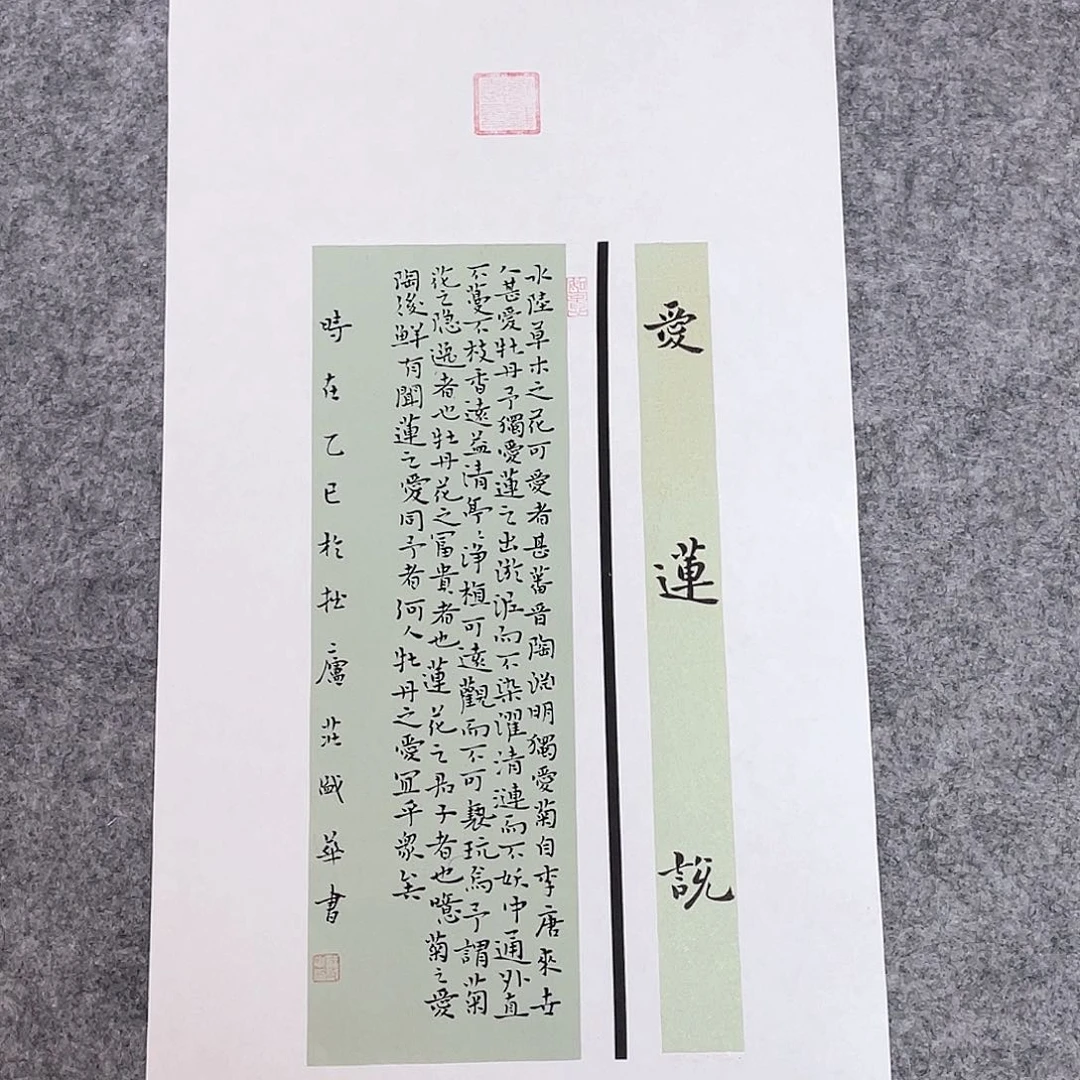 愛蓮説
水陸草木之花可愛者甚蕃晋陶渊明獨愛菊自李唐來世
人甚愛牡丹予獨愛蓮之出淤泥而不染濯清漣而不妖中通外直
不蔓不枝香遠益清亭〻淨植可遠觀而不可褻玩焉予謂菊
花之隐逸者也牡丹花之冨貴者也蓮花之君子者也噫菊之愛
陶後鮮有聞蓮之愛同予者何人牡丹之愛宜乎衆矣
時在乙巳於拙〻廬莊盛華書